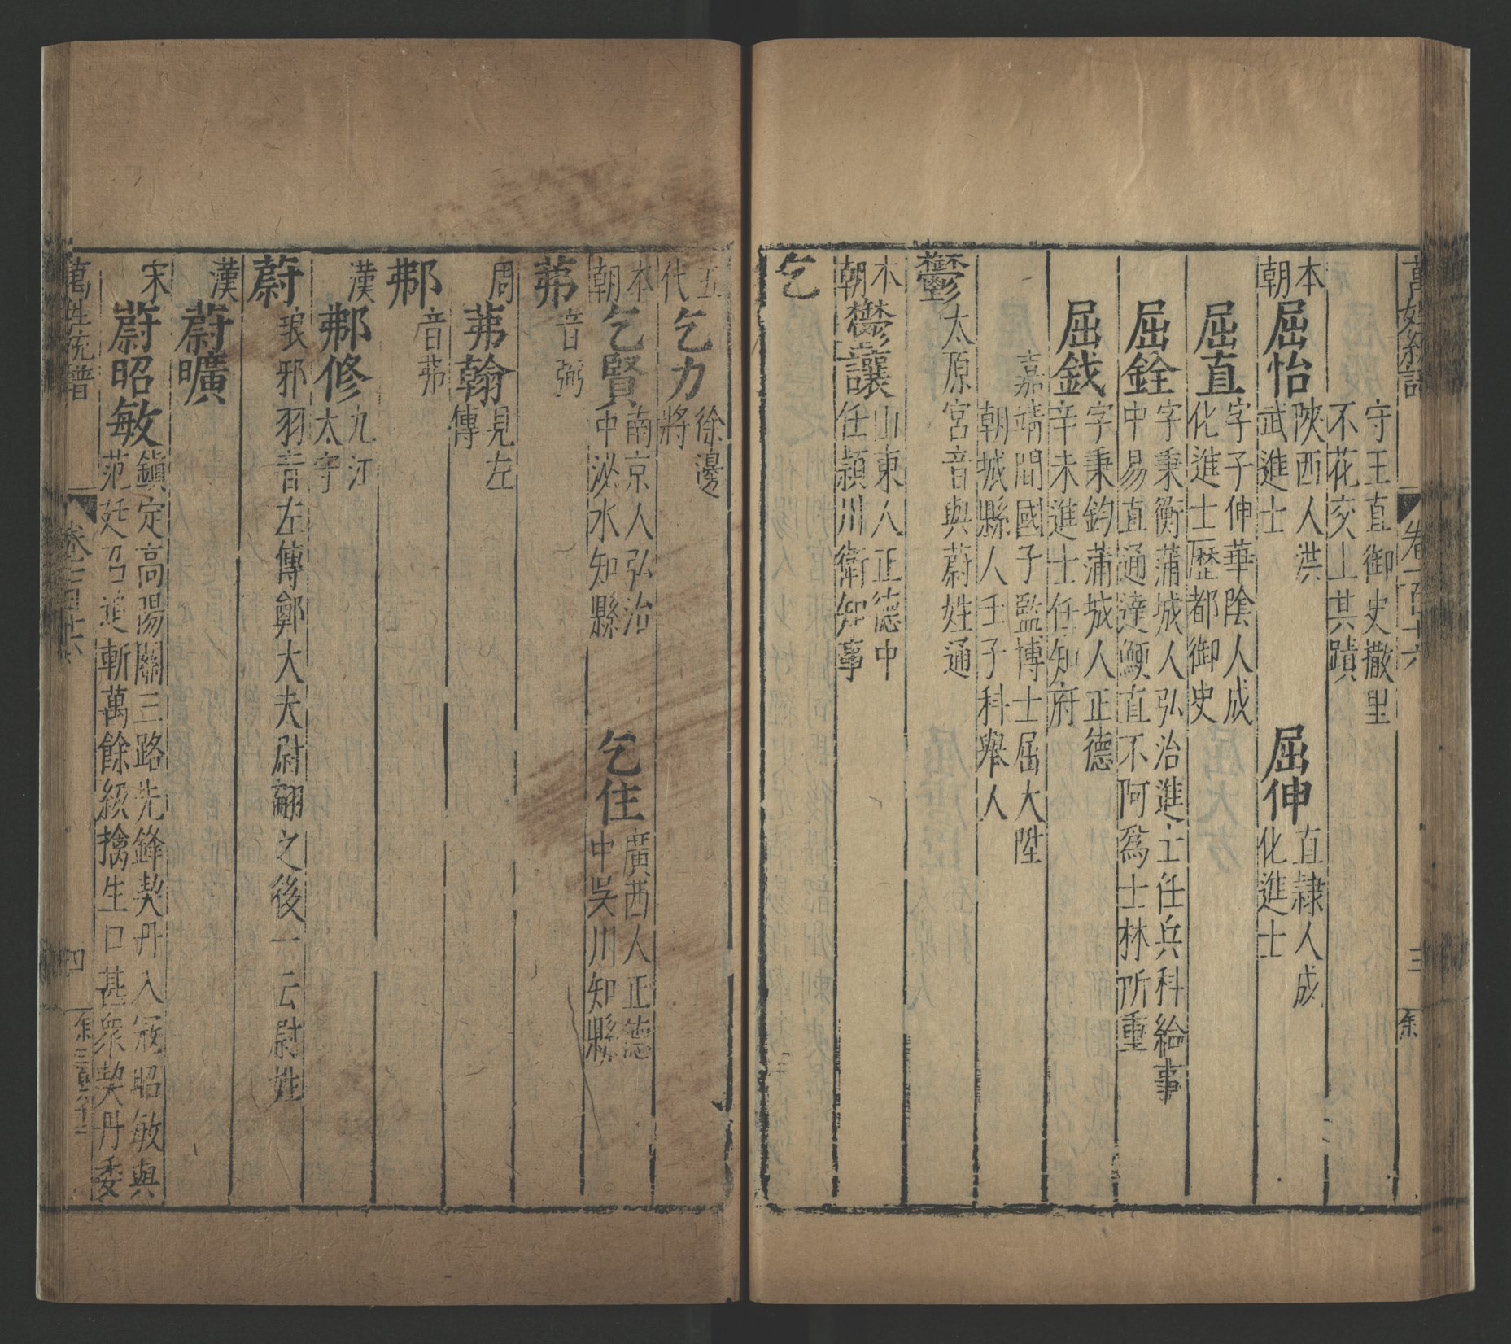 萬姓統譜 卷一百十六 三
守王直御史撒里
不花交上其蹟
本朝 屈怡 陝西人洪武進士 屈伸 直隷人成化進士
屈直 字子伸華陰人成化進士歷都御史
屈銓 字秉衡蒲城人弘治進士任兵科給事中易直通達鯁直不阿爲士林所重
屈鉞 字秉鈞蒲城人正德辛未進士任知府
嘉靖間國子監博士屈大陞
朝城縣人壬子科舉人
鬱 太原宮音與蔚姓通
本朝 鬱讓 山東人正德中任潁川衛知事
乞
五代 乞力 徐邊將
本朝 乞賢 南京人弘治中泌水知縣 乞住 廣西人正德中吳川知縣
茀 音弼
周 茀翰 見左傳
郱 音茀
漢 郱修 九江太守
蔚 琅邪羽音左傳鄭大夫尉翩之後一云尉姓
漢 蔚曠
宋 蔚昭敏 鎮定高陽關三路先鋒契丹入寇昭敏與范廷召追斬萬餘級擒生口甚衆契丹委
萬姓統譜 卷一百十六 四